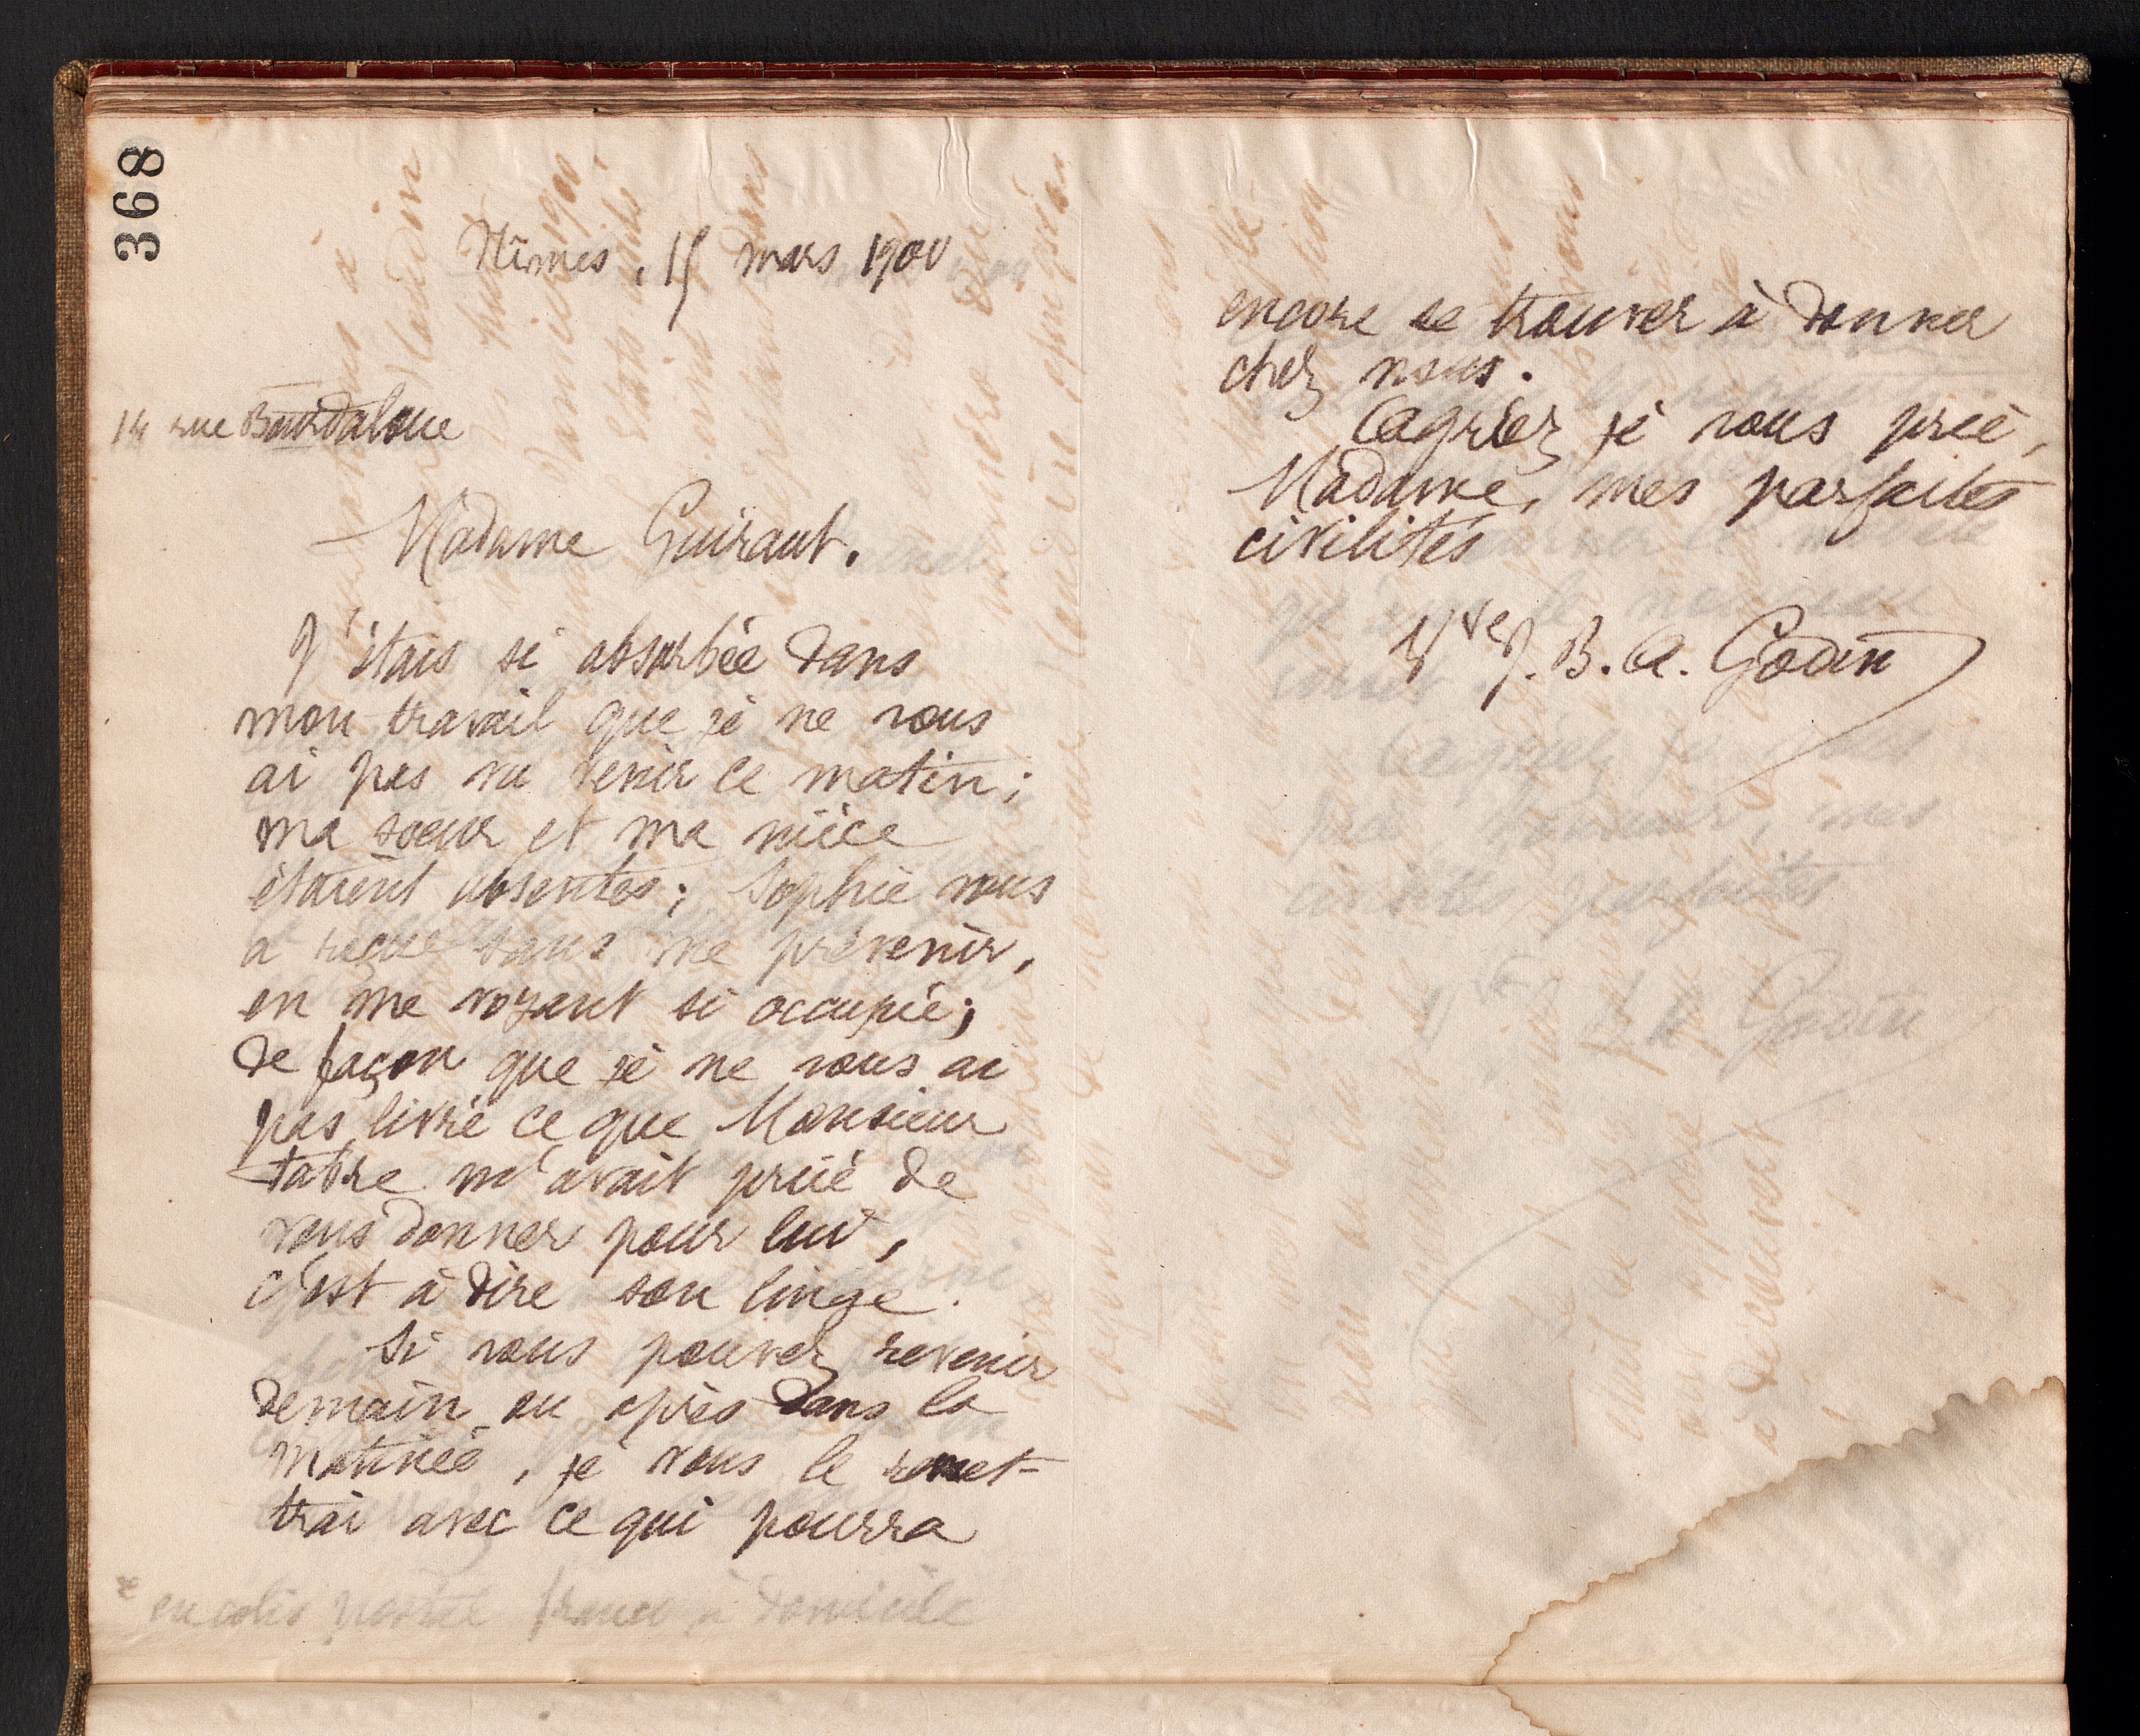 368
Nîmes, 15 mars 1900
14 rue Bourdaloue
Madame Guiraut.
J'étais si absorbée dans
mon travail que je ne vous
ai pas vu venir ce matin;
ma soeur et ma nièce
étaient absentes; Sophie vous
a reçue sans me prévenir,
en me voyant si occupée;
de façon que je ne vous ai
pas livré ce que Monsieur
Fabre m'avait prié de
vous donner pour lui,
c'est à dire son linge.
Si vous pouvez revenir
demain ou après dans la
matinée, je vous le remet-
trai avec ce qui pourra
encore se trouver à donner
chez nous.
Agréez, je vous prie,
Madame, mes parfaites
civilités
Vve J. B. A. Godin
en colis postal franco à domicile